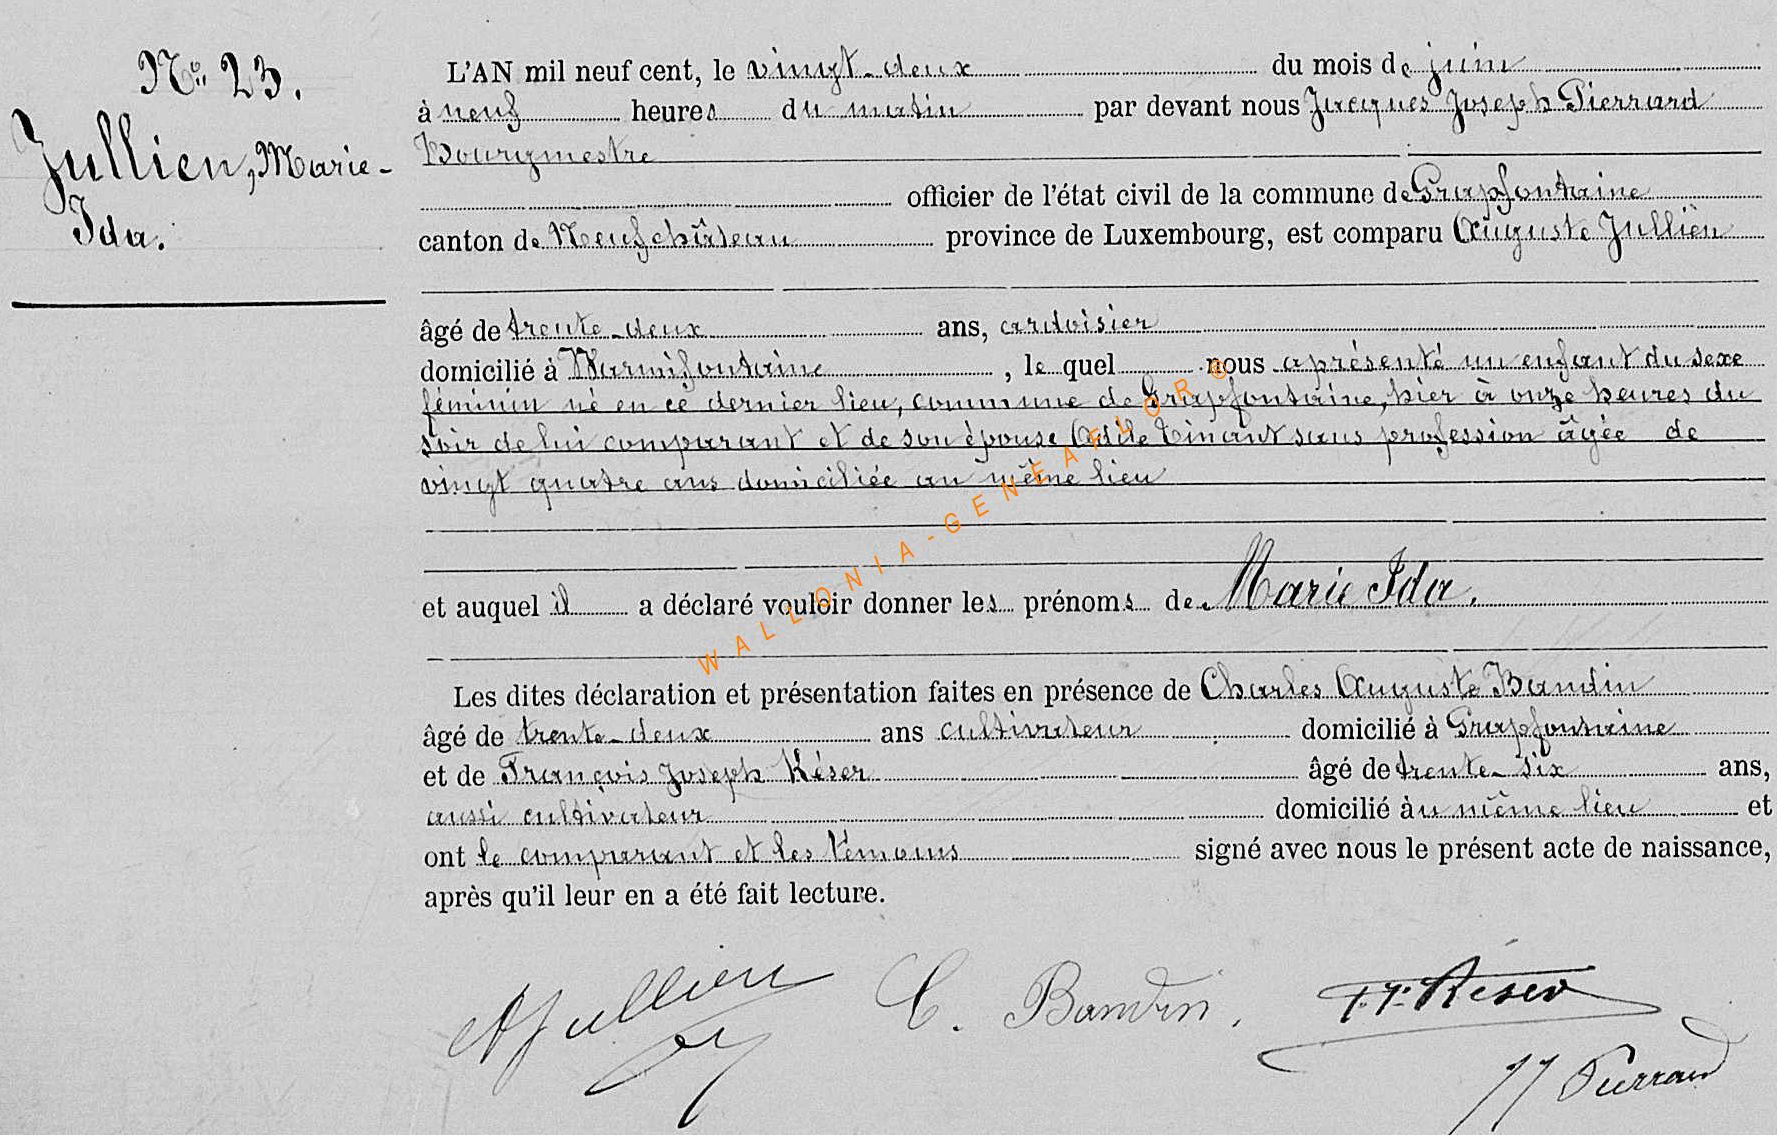 N° 23.
Jullien, Marie-
Ida.
L'AN mil neuf cent, le vingt-deux du mois de juin
à neuf heures du matin par devant nous Jacques Joseph Pierrard
Bourgmestre
officier de l'état civil de la commune de Grapfontaine
canton de Neufchâteau province de Luxembourg, est comparu Auguste Jullien
âgé de trente-deux ans, ardoisier
domicilié à Warmifontaine, le quel nous a présenté un enfant du sexe
féminin né en ce dernier lieu, commune de Grapfontaine, hier à onze heures du
soir de lui comparant et de son épouse Odile Tinant sans profession âgée de
vingt quatre ans domiciliée au même lieu
et auquel il a déclaré vouloir donner les prénoms de Marie Ida.
Les dites déclaration et présentation faites en présence de Charles Auguste Bandin
âgé de trente-deux ans cultivateur domicilié à Grapfontaine
et de François Joseph Késer âgé de trente-six ans,
aussi cultivateur domicilié au même lieu et
ont le comparant et les témoins signé avec nous le présent acte de naissance,
après qu'il leur en a été fait lecture.
AJullien C. Bandin. F.J. Késer
JJ Pierrard
WALLONIA-GENEAFLOR ©